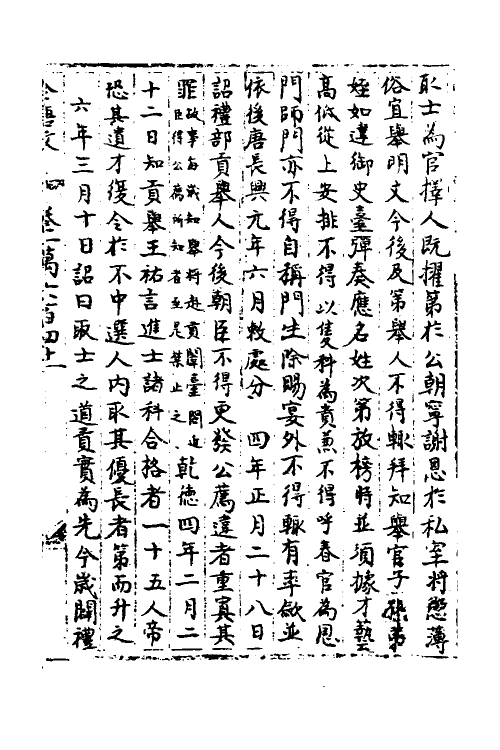 取士為官擇人既擢第於公朝寧謝恩於私室將懲薄
俗宜舉明文今後及第舉人不得輒拜知舉官子孫弟
姪如違御史臺彈奏應名姓次第放榜時並須據才藝
高低從上安排不得以隻科為貴兼不得呼春官為恩
門師門亦不得自稱門生除賜宴外不得輒有率斂並
依後唐長興元年六月敕處分 四年正月二十八日
詔禮部貢舉人今後朝臣不得更發公薦違者重寘其
罪故事每歲知舉將赴貢闈臺閣近
臣得公薦所知者至是禁止之乾德四年二月二
十二日知貢舉王祐言進士諸科合格者一十五人帝
恐其遺才復令於不中選人內取其優長者第而升之
六年三月十日詔曰取士之道責實為先今歲開禮
卷一萬六百四十一